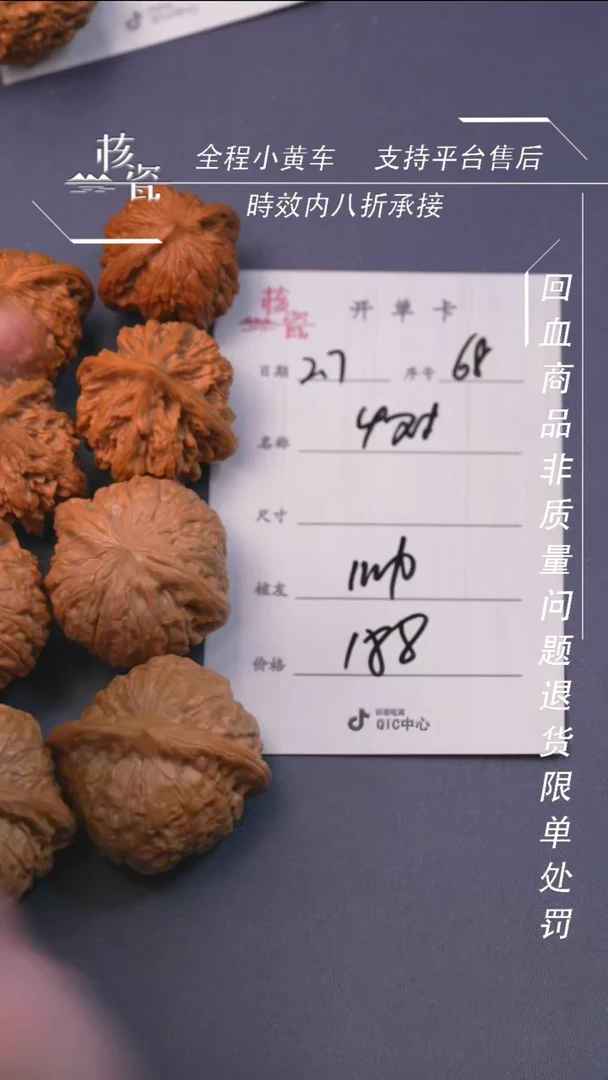 核瓷
全程小黄车 支持平台售后
時效内八折承接
回血商品非质量问题退货限单处罚
核瓷
开单卡
日期 2.7 序号 68
名称 4对
尺寸
核友
价格 188
QIC中心